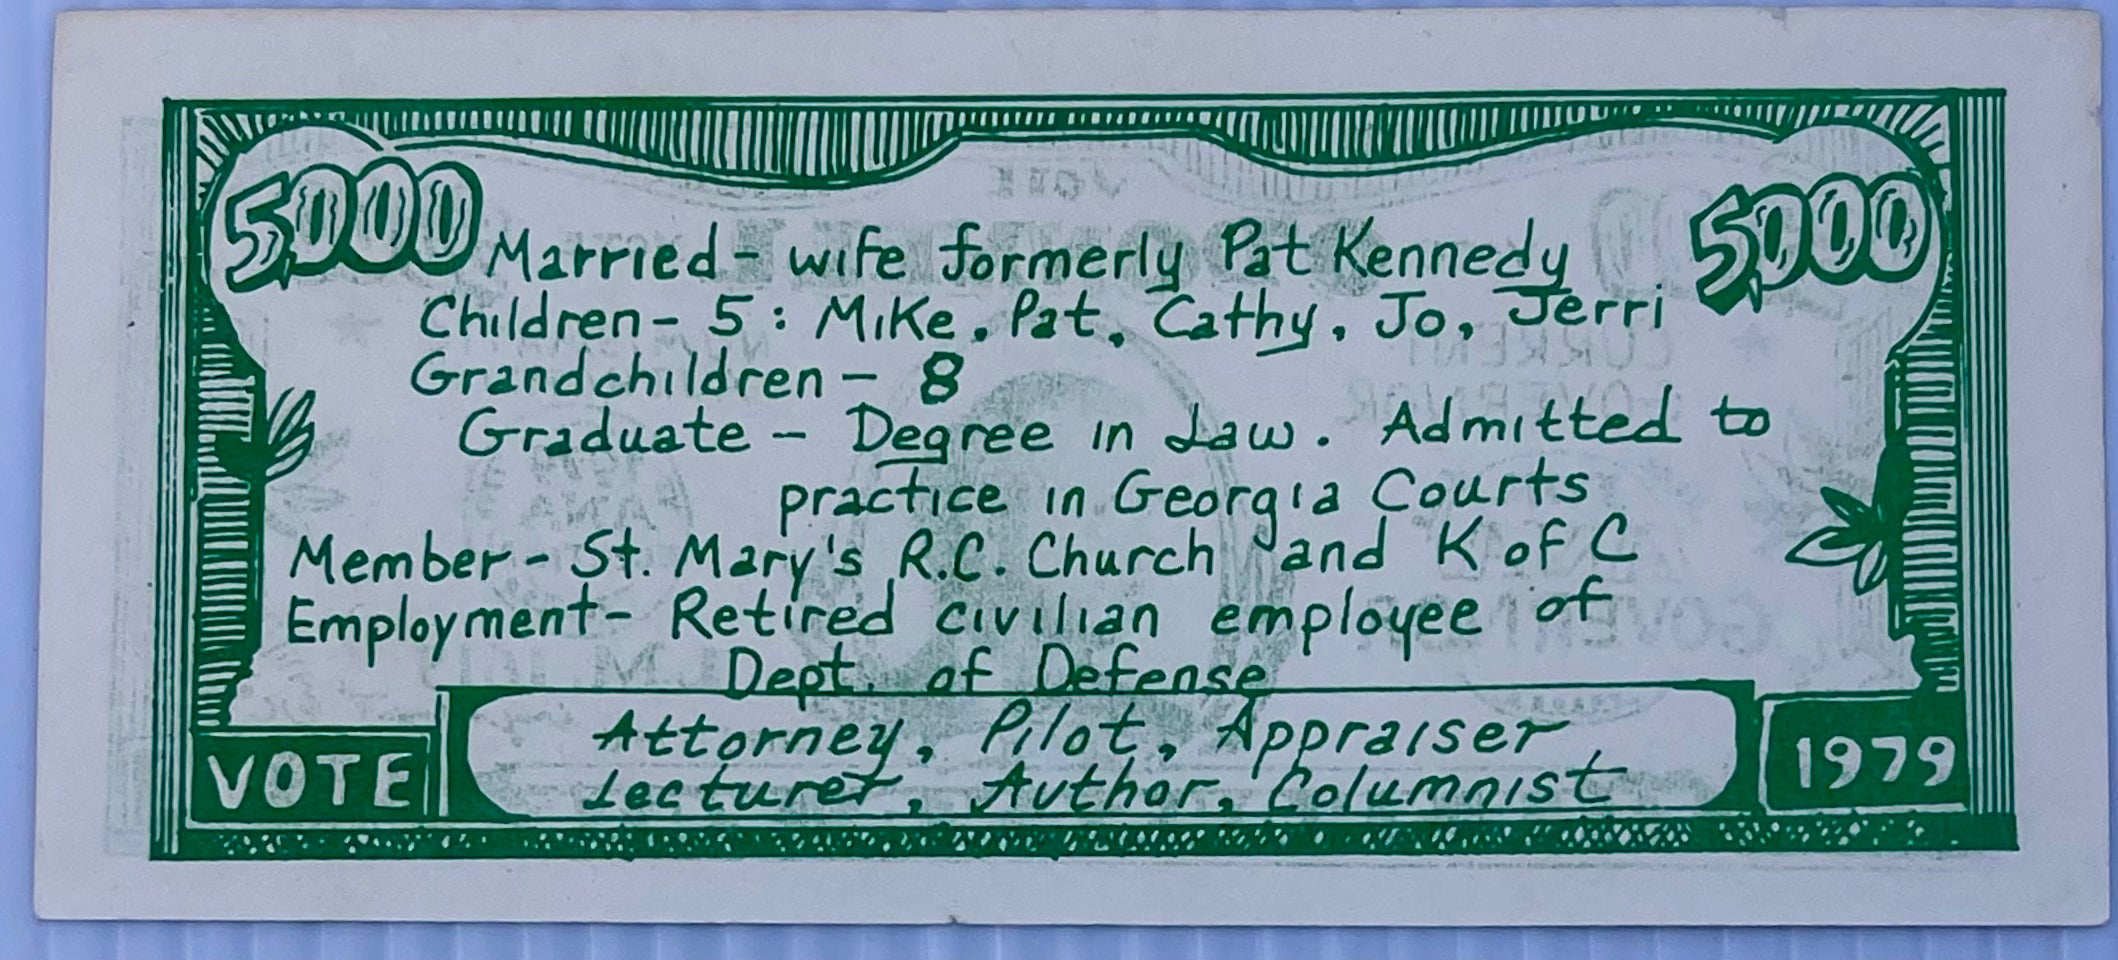 5,000 5,000
Married - wife formerly Pat Kennedy
Children - 5 : Mike, Pat, Cathy, Jo, Jerri
Grandchildren - 8
Graduate - Degree in Law. Admitted to
practice in Georgia Courts
Member - St. Mary's R.C. Church and K of C
Employment - Retired civilian employee of
Dept. of Defense
Attorney, Pilot, Appraiser,
Lecturer, Author, Columnist
VOTE 1979